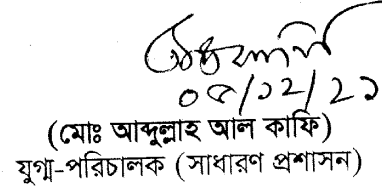 ০৫/১২/২১
(মোঃ আব্দুল্লাহ আল কাফি)
যুগ্ম-পরিচালক (সাধারণ প্রশাসন)